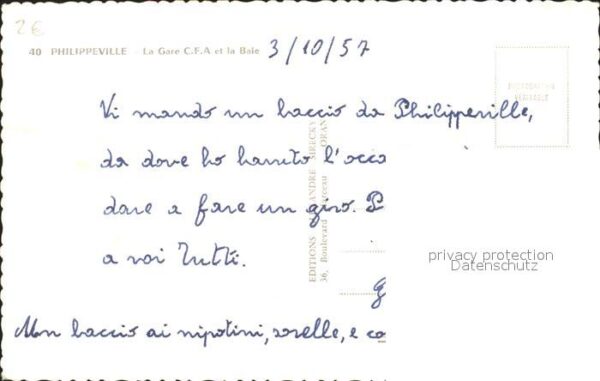 2€
40 PHILIPPEVILLE - La Gare C.F.A et la Baie
3/10/57
Vi mando un baccio da Philippeville,
da dove ho hanuto l'occa
dare a fare un giro. P
a voi Tutti.
g
Mon baccio ai nipotini, sorelle, e co
EDITIONS ANDRE SIRECKY
36, Boulevard ORAN
VERITABLE
privacy protection
Datenschutz